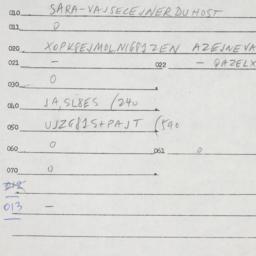 010 SARA-VAJSECEJNERDUHOST
011 0
020 XOPK8EJMOL,NI6812EN AZEJNEVA
021 - 022 - QAZELX
030 0
040 JA,SL8ES (240
050 UJZG81S+PAJT (590
060 0 061 0
070 0
013 -